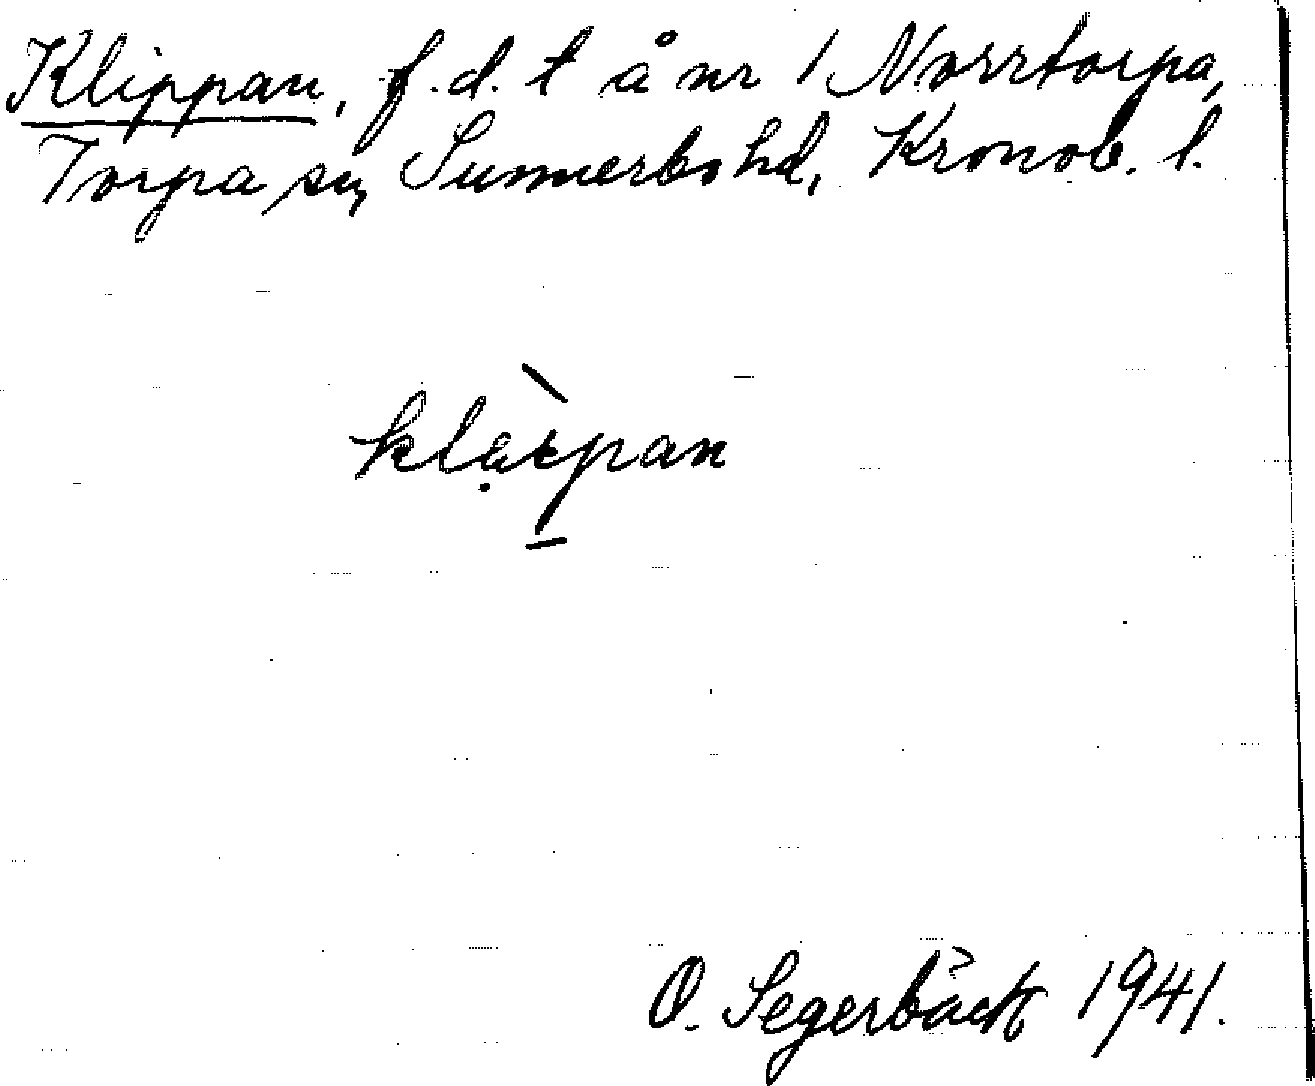 Klippan, f.d. t å nr 1 Norrtorpa,
Torpa sn, Sunnerbo hd, Kronob. l.
O. Segerbäck 1941.